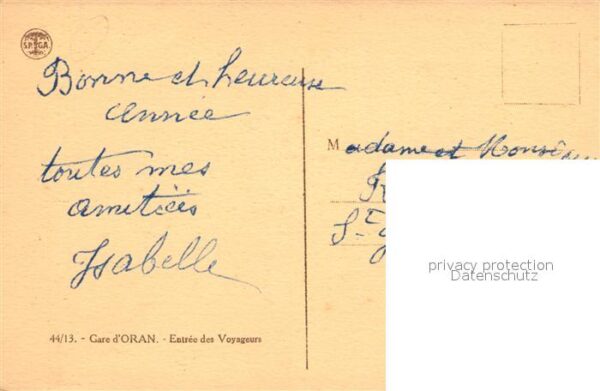 S.P.G.A.
Bonne et heureuse
année
toutes mes
amitiées
Isabelle
44/13. - Gare d'ORAN. - Entrée des Voyageurs
Madame et Monsieur
St
privacy protection
Datenschutz